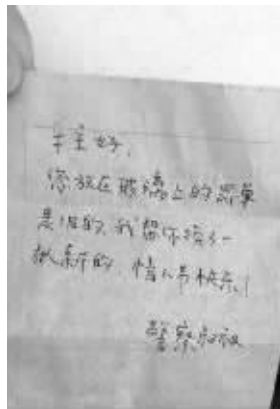 车主好,
您放在玻璃上的罚单
是旧的,我帮你换了一
张新的,情人节快乐!
警察叔叔